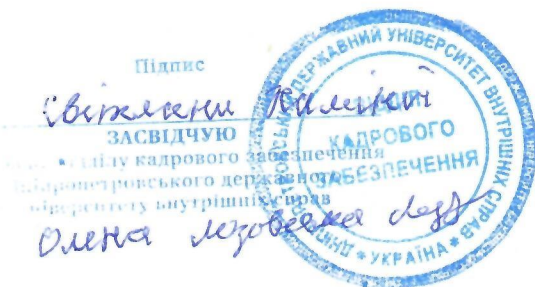 Підпис
Світлани Каміної
ЗАСВІДЧУЮ
відділу кадрового забезпечення
Дніпропетровського державного
університету внутрішніх справ
Олена Лозовська
ДНІПРОПЕТРОВСЬКИЙ ДЕРЖАВНИЙ УНІВЕРСИТЕТ ВНУТРІШНІХ СПРАВ * УКРАЇНА *
КАДРОВОГО
ЗАБЕЗПЕЧЕННЯ